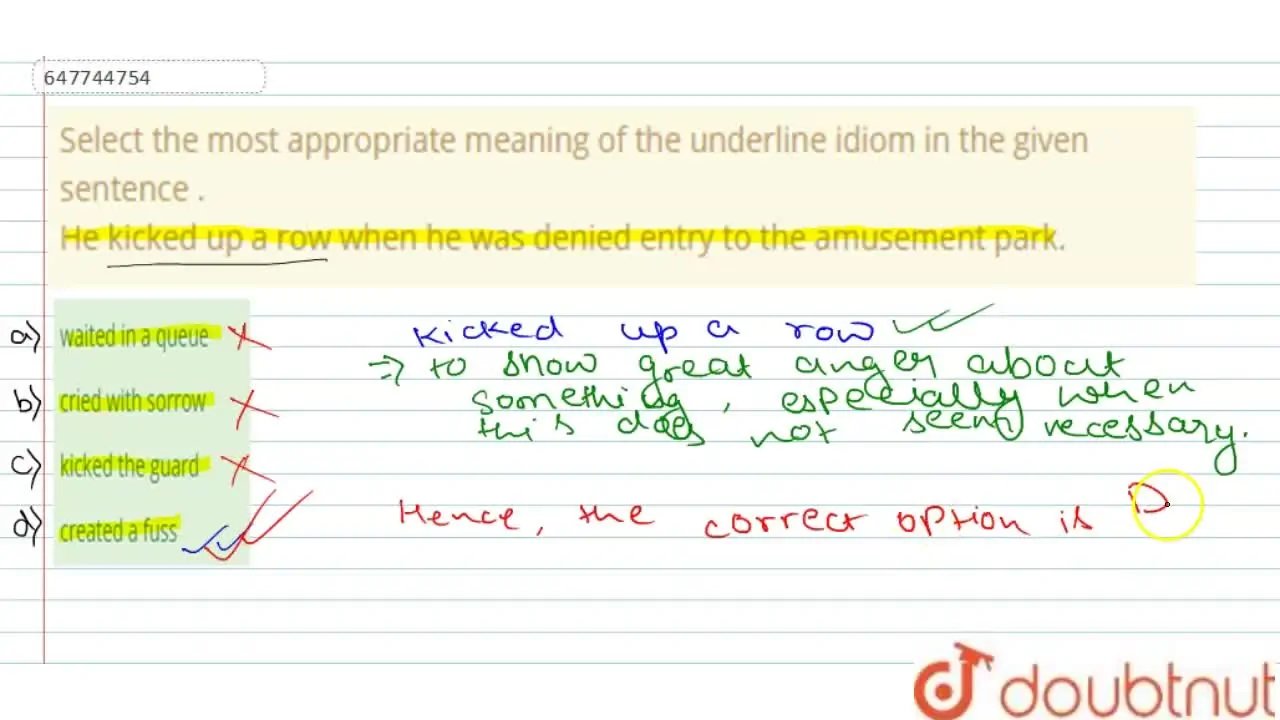 647744754
Select the most appropriate meaning of the underline idiom in the given
sentence .
He kicked up a row when he was denied entry to the amusement park.
a) waited in a queue
b) cried with sorrow
c) kicked the guard
d) created a fuss
kicked up a row
=> to show great anger about
something, especially when
this does not seem necessary.
Hence, the correct option is D
doubtnut